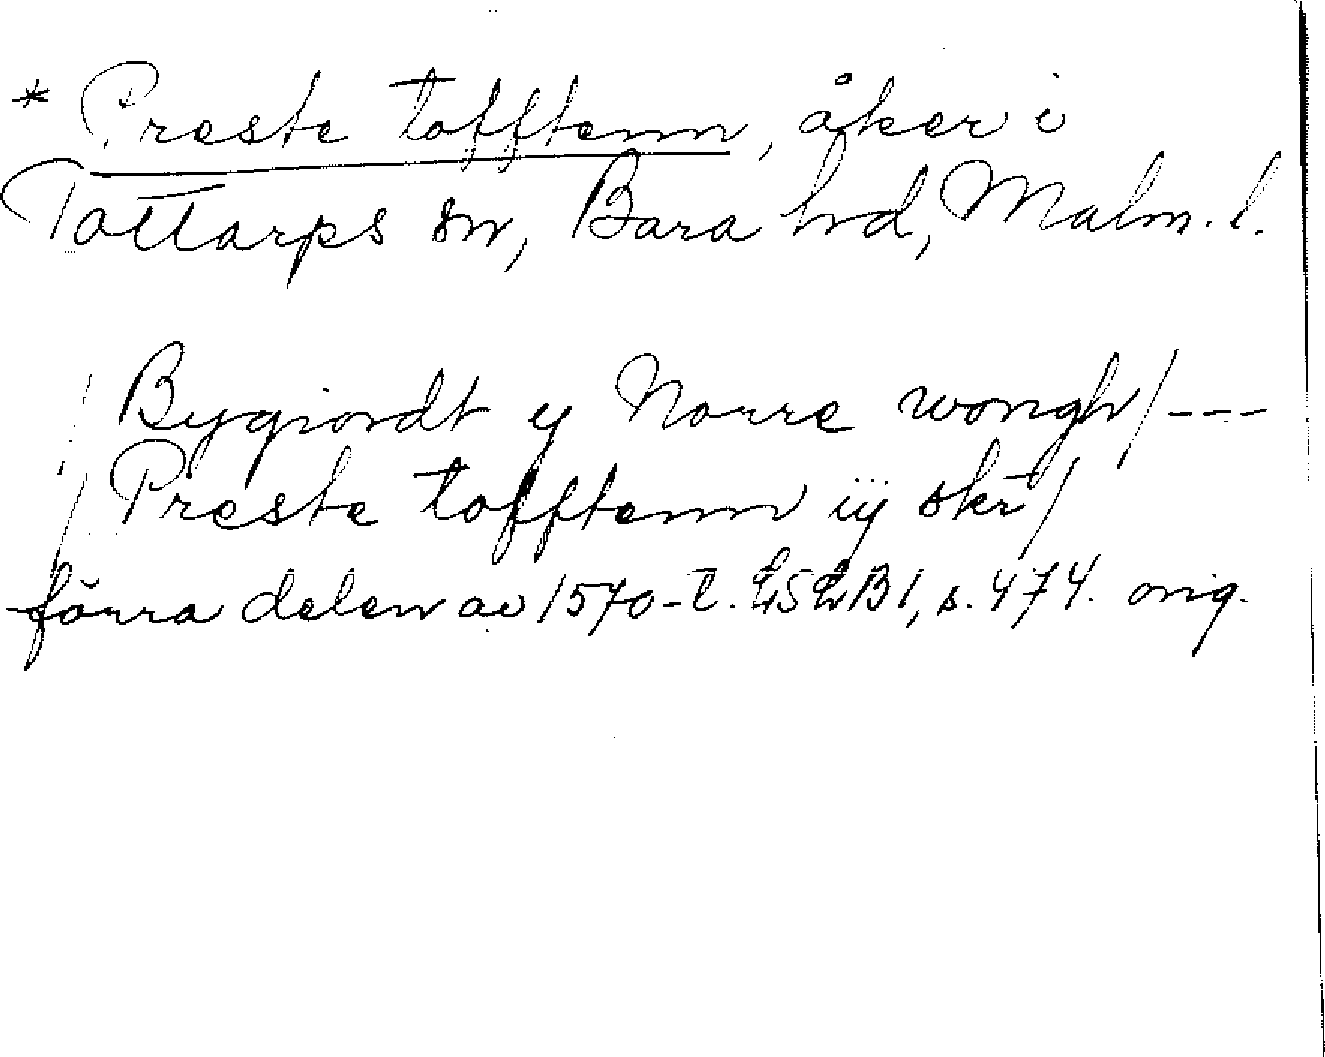 * Preste tofftenn, åker i
Tottarps sn, Bara hd, Malm. l.
/ Bygiordt y Norre wongh/ ---
/ Preste tofftenn iij skr/
förra delen av 1570-t. LSLB1, s. 474. orig.